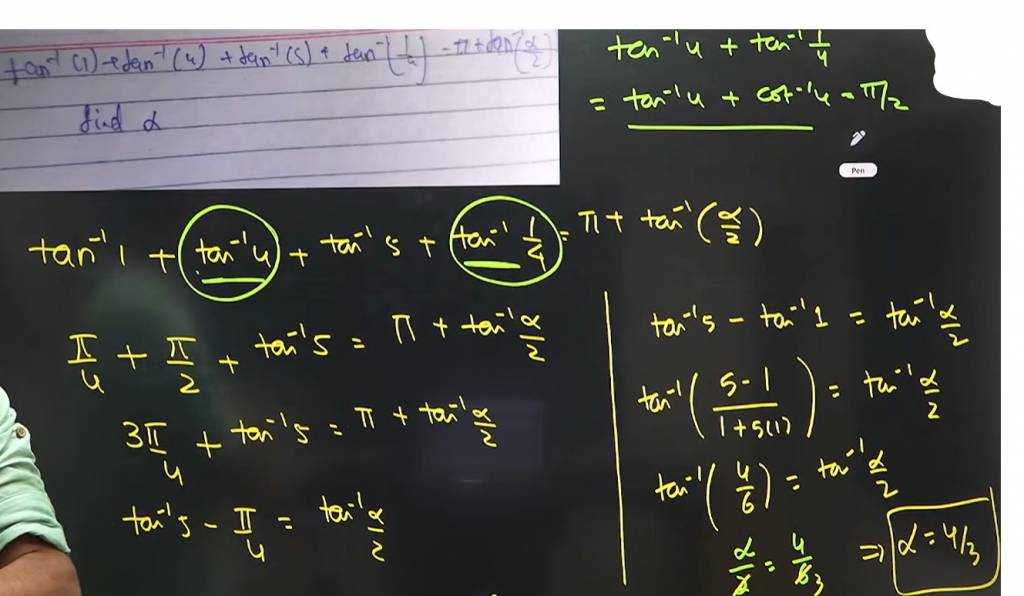 tan⁻¹(1) + tan⁻¹(4) + tan⁻¹(5) + tan⁻¹(1/4) = π + tan⁻¹(α/2)
find α
tan⁻¹4 + tan⁻¹ 1/4
= tan⁻¹4 + cot⁻¹4 = π/2
Pen
tan⁻¹1 + tan⁻¹4 + tan⁻¹5 + tan⁻¹ 1/4 = π + tan⁻¹(α/2)
π/4 + π/2 + tan⁻¹5 = π + tan⁻¹ α/2
3π/4 + tan⁻¹5 = π + tan⁻¹ α/2
tan⁻¹5 - π/4 = tan⁻¹ α/2
tan⁻¹5 - tan⁻¹1 = tan⁻¹ α/2
tan⁻¹(5-1/1+5(1)) = tan⁻¹ α/2
tan⁻¹(4/6) = tan⁻¹ α/2
α/2 = 4/6 3 ⇒ α = 4/3